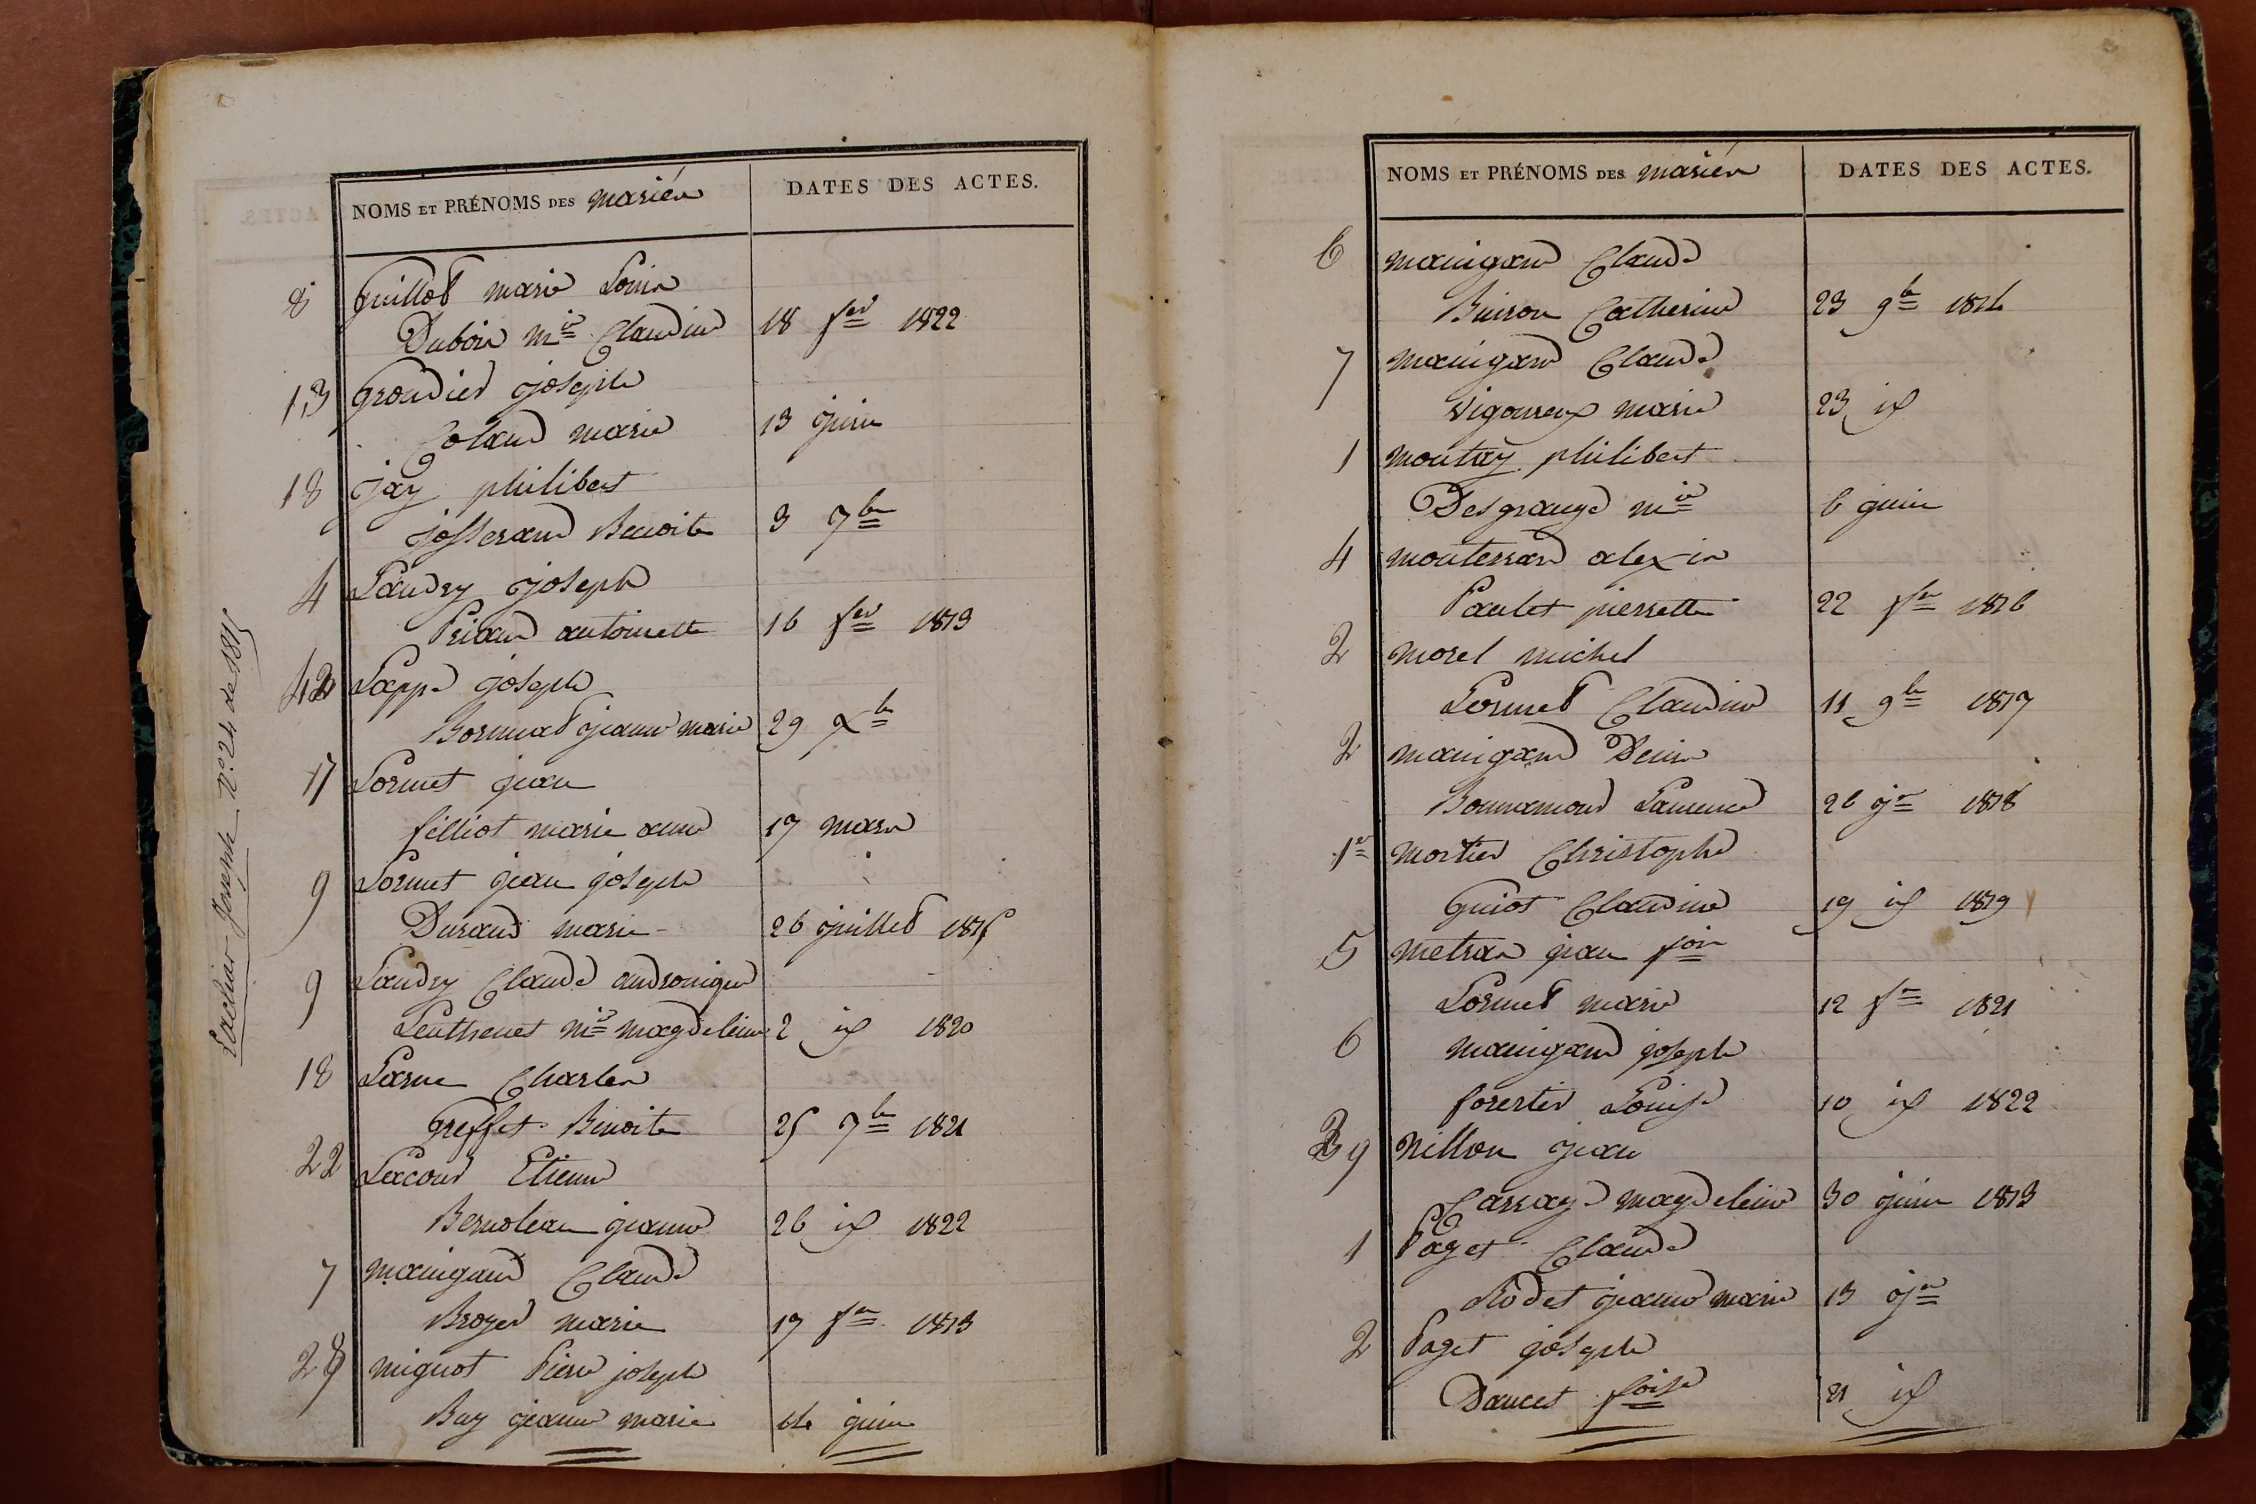 NOMS ET PRÉNOMS DES mariés DATES DES ACTES.
8 Guillot marie Louis
Dubois mie Claudine 18 fer 1822
13 Grondier joseph
Coland marie 13 juin
18 Jay philibert
josserand Benoite 3 7bre
4 Landry joseph
Priand antoinette 16 fer 1813
42 Lapp joseph
Bornnat jeanne marie 29 xbre
17 Lormet jean
felliot marie anne 17 mars
9 Lormet jean joseph
Durand marie 26 juillet 1815
9 Landry Claude andronique
Leuthenet mie magdeleine 2 id 1820
18 Larue Charles
Greffet Benoite 25 7bre 1821
22 Lacour Etienne
Bernoleau jeanne 26 id 1822
7 maingaud Claude
Broyer marie 17 fer 1813
29 mignot Pierre joseph
Buy jeanne marie 14 juin
Lachar Joseph No. 24 de 1815
NOMS ET PRÉNOMS DES mariés DATES DES ACTES.
6 maingaud Claude
Buison Catherine 23 9bre 1814
7 maingaud Claude
Vigoureux marie 23 id
1 montuy philibert
Desgrange mie 6 juin
4 monterrard alexis
Paulet pierrette 22 fer 1816
2 morel michel
Lormet Claudine 11 9bre 1817
2 maingaud Denis
Bonnamour Laurence 26 jer 1818
1er mortier Christophe
Guiot Claudine 19 id 1819
5 metras jean fois
Lormet marie 12 fer 1821
6 maingaud joseph
forestier Louise 10 id 1822
29 nillon jean
Carray magdeleine 30 juin 1813
1 Paget Claude
Rodet jeanne marie 13 jer
2 Paget joseph
Daucet foise 21 id